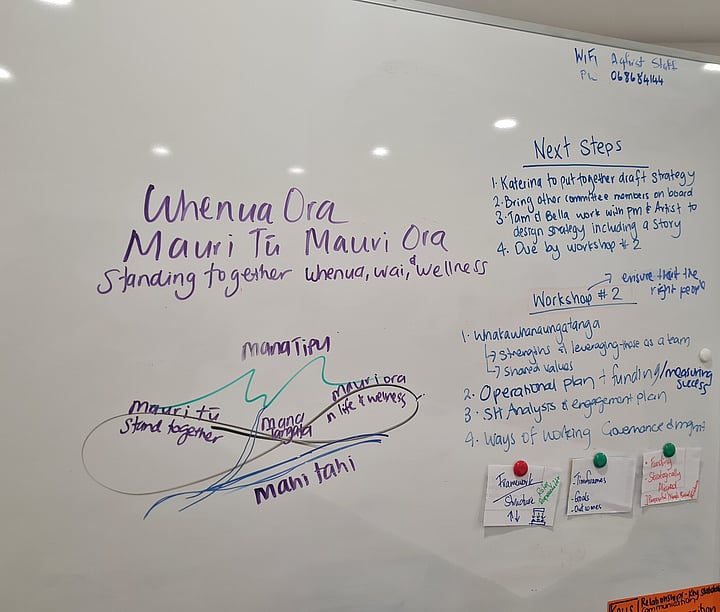 WiFi Agfirst Staff
PW 068684144
Whenua Ora
Mauri Tū Mauri Ora
Standing together whenua, wai, & wellness
Next Steps
1. Katerina to put together draft strategy
2. Bring other committee members on board
3. Tam & Bella work with pm & Artist to
design strategy including a story
4. Due by workshop #2
ensure that the
right people
Workshop #2
1. Whatawhanaungatanga
Strengths & leveraging those as a team
Shared values
2. Operational plan + funding/measuring
success
3. SH Analysis & engagement plan
4. Ways of working Governance & mgmt
Mana Tipu
Mauri tū
Stand together
Mana
tangata
Mauri ora
n life & wellness
Mahi tahi
Framework
Structure
Timeframes
- Goals
- Outcomes
Funding
- Strategically
Aligned